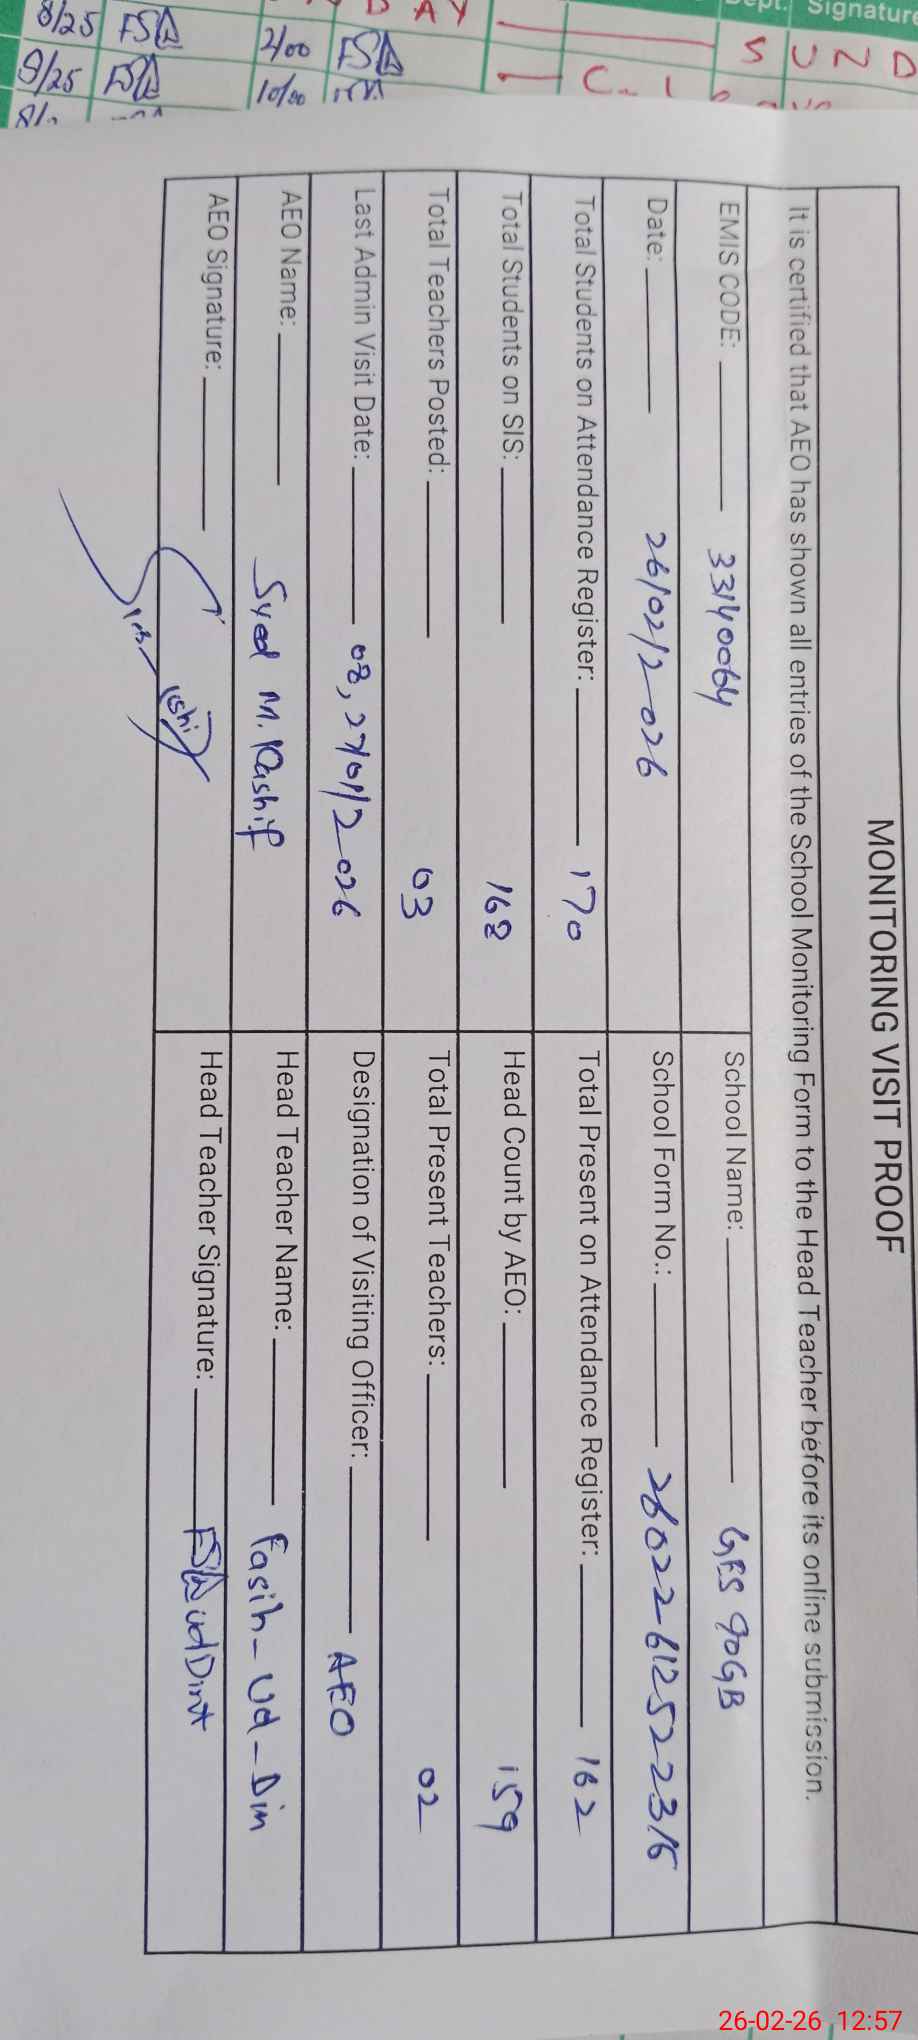 MONITORING VISIT PROOF
It is certified that AEO has shown all entries of the School Monitoring Form to the Head Teacher before its online submission.
EMIS CODE: 33140064
School Name: GES 90GB
Date: 26/02/2026
School Form No.:
Total Students on Attendance Register: 170
Total Present on Attendance Register: 162
Total Students on SIS: 168
Head Count by AEO: 159
Total Teachers Posted: 03
Total Present Teachers: 02
Last Admin Visit Date: 08, 27/01/2026
Designation of Visiting Officer: AEO
AEO Name: Syed M. Kashif
Head Teacher Name: Fasih-Ud-Din
AEO Signature:
Head Teacher Signature:
Dept. Signature
S U N D
D A Y
8/25
2/00
9/25
10/00
26-02-26 12:57